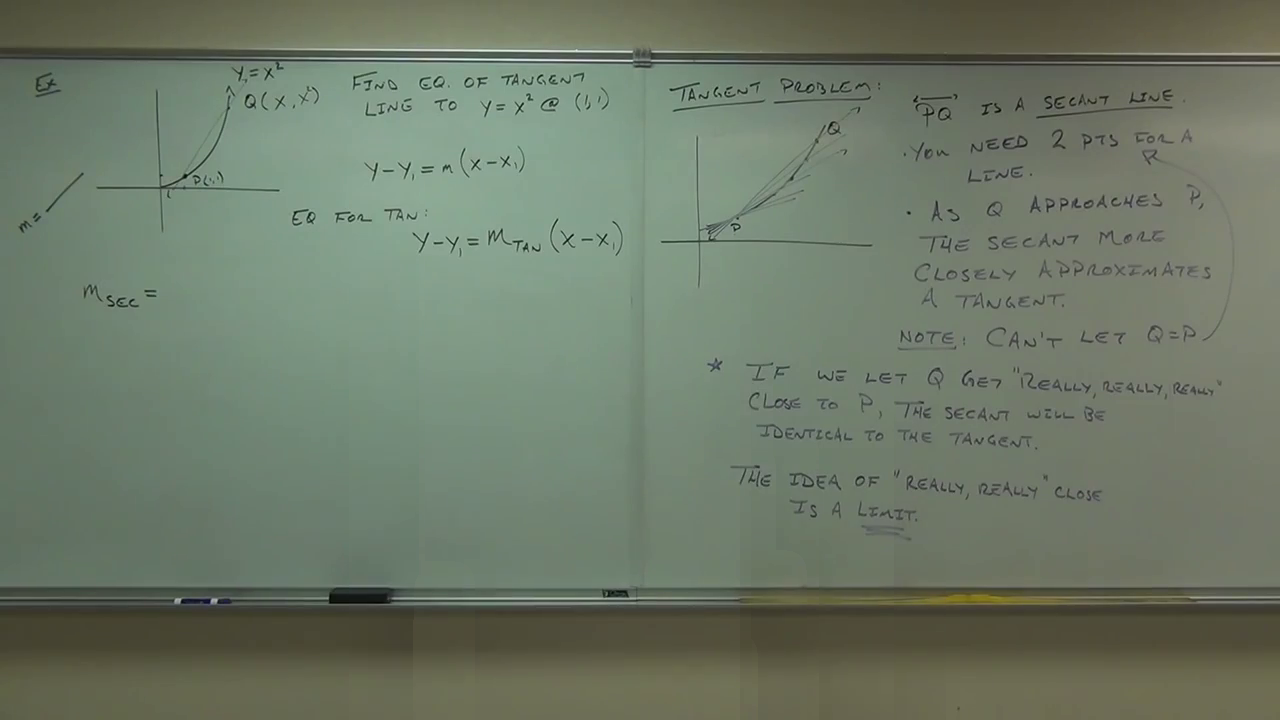 Ex
Y₁=X²
Q(X, X²)
P(1,1)
m=
FIND EQ. OF TANGENT
LINE TO Y=X² @ (1,1)
Y-Y₁=m(X-X₁)
EQ FOR TAN:
Y-Y₁=m_TAN(X-X₁)
m_SEC=
TANGENT PROBLEM:
Q
P
PQ IS A SECANT LINE.
•YOU NEED 2 PTS FOR A
LINE.
• AS Q APPROACHES P,
THE SECANT MORE
CLOSELY APPROXIMATES
A TANGENT.
NOTE: CAN'T LET Q=P
* IF WE LET Q GET "REALLY, REALLY, REALLY"
CLOSE TO P, THE SECANT WILL BE
IDENTICAL TO THE TANGENT.
THE IDEA OF "REALLY, REALLY" CLOSE
IS A LIMIT.